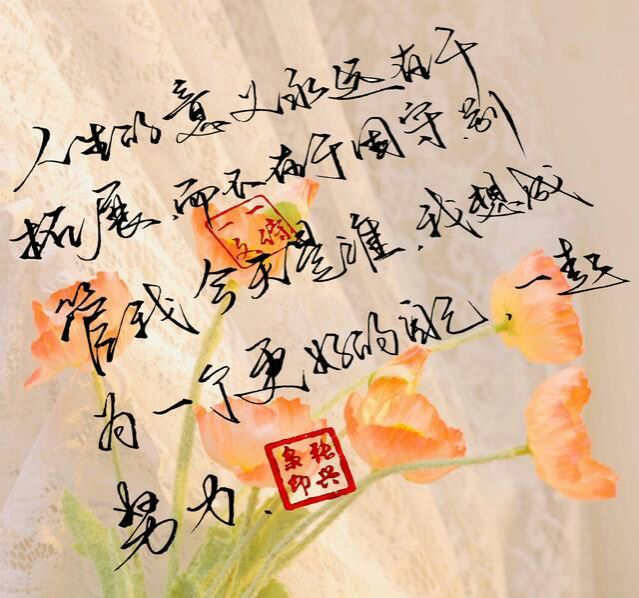 人生的意义永远在于
拓展，而不在于固守，别
管我今天是谁，我想成
为一个更好的自己，一起
努力。